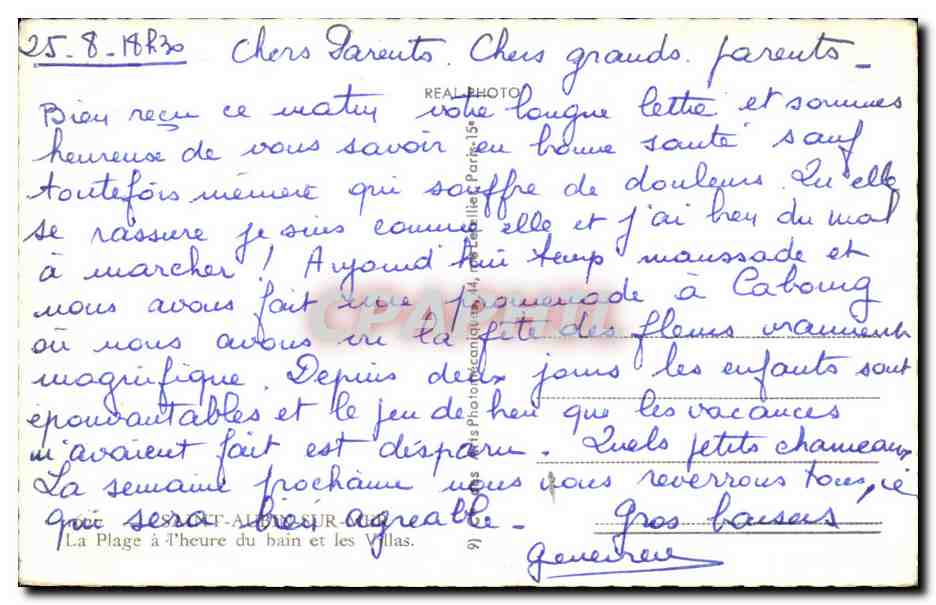 25-8-18h30 Chers Parents. Chers grands. parents -
REAL PHOTO
Bien reçu ce matin votre longue lettre et sommes
heureuse de vous savoir en bonne santé sauf
toutefois mémère qui souffre de douleurs. Qu'elle
se rassure je suis comme elle et j'ai bien du mal
à marcher ! Aujourd'hui temps maussade et
nous avons fait une promenade à Cabourg
où nous avons vu la fête des fleurs vraiment
magnifique. Depuis deux jours les enfants sont
épouvantables et le peu de bien que les vacances
m'avaient fait est disparu. Quels petits chameaux
La semaine prochaine nous vous reverrons tous, ce
qui sera bien agréable -
Gros baisers
Genevieve
SAINT-AUBIN-SUR-MER
La Plage à l'heure du bain et les Villas.
Arts Photomécaniques, 44, rue Letellier, Paris-15e
CPAPHIL